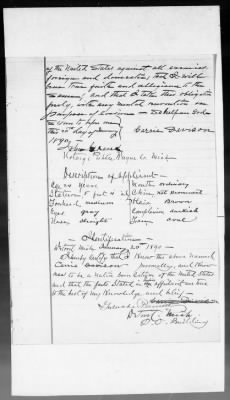 of the United States against all enemies
foreign and domestic; that I will
bear true faith and allegiance to the
same; and that I take this obligation
freely, without any mental reservation or
purpose of evasion — So help me God —
Sworn to before me
this 20 day of Carrie Davison
1890
Notary Public Wayne Co Mich
Description of Applicant —
Age 24 Years Mouth ordinary
Stature 5 feet 4 in Chin not prominent
Forehead medium Hair Brown
Eyes gray Complexion
Nose straight Face oval
Identification
Detroit Mich 20th 1890 —
I hereby certify that I know the above named
Carrie Davison personally, and know
to be a native born Citizen of the United States
and that the facts stated in affidavit are true
to the best of my Knowledge and belief
Detroit Mich
Building